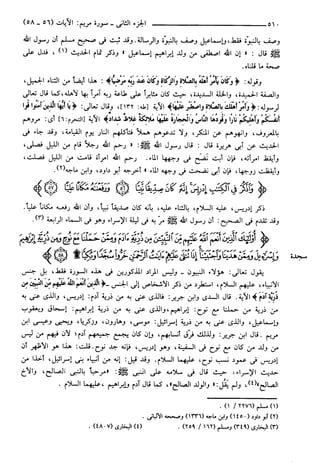 ٥٦٠ ــــــــ الجزء الثاني - سورة مريم: الآيات (٥٦ ـ ٥٨)
وصف بالنبوة فقط، وإسماعيل وصف بالنبوة والرسالة. وقد ثبت في صحيح مسلم أن رسول الله
ﷺ قال: «إن الله اصطفى من ولد إبراهيم إسماعيل» وذكر تمام الحديث (١)، فدل على
صحة ما قلناه.
وقوله: ﴿وَكَانَ يَأْمُرُ أَهْلَهُ بِالصَّلَاةِ وَالزَّكَاةِ وَكَانَ عِنْدَ رَبِّهِ مَرْضِيًّا﴾: هذا أيضاً من الثناء الجميل،
والصفة الحميدة، والخلة السديدة، حيث كان مثابراً على طاعة ربه آمراً بها لأهله، كما قال تعالى
لرسوله: ﴿وَأْمُرْ أَهْلَكَ بِالصَّلَاةِ وَاصْطَبِرْ عَلَيْهَا﴾ الآية [طه: ١٣٢]، وقال تعالى: ﴿يَا أَيُّهَا الَّذِينَ آمَنُوا قُوا
أَنْفُسَكُمْ وَأَهْلِيكُمْ نَارًا وَقُودُهَا النَّاسُ وَالْحِجَارَةُ عَلَيْهَا مَلَائِكَةٌ غِلَاظٌ شِدَادٌ﴾ الآية [التحريم: ٦] أي: مروهم
بالمعروف، وانهوهم عن المنكر، ولا تدعوهم هملاً فتأكلهم النار يوم القيامة. وقد جاء في
الحديث عن أبي هريرة قال: قال رسول الله ﷺ: «رحم الله رجلاً قام من الليل فصلى،
وأيقظ امرأته، فإن أبت نضح في وجهها الماء. رحم الله امرأة قامت من الليل فصلت،
وأيقظت زوجها، فإن أبى نضحت في وجهه الماء» أخرجه أبو داود، وابن ماجه (٢).
﴿وَاذْكُرْ فِي الْكِتَابِ إِدْرِيسَ إِنَّهُ كَانَ صِدِّيقًا نَبِيًّا ۝ وَرَفَعْنَاهُ مَكَانًا عَلِيًّا ۝﴾
ذكر إدريس، عليه السلام، بالثناء عليه، بأنه كان صديقاً نبياً، وأن الله رفعه مكاناً علياً.
وقد تقدم في الصحيح: أن رسول الله ﷺ مر به في ليلة الإسراء وهو في السماء الرابعة (٣).
﴿أُولَئِكَ الَّذِينَ أَنْعَمَ اللَّهُ عَلَيْهِمْ مِنَ النَّبِيِّينَ مِنْ ذُرِّيَّةِ آدَمَ وَمِمَّنْ حَمَلْنَا مَعَ نُوحٍ وَمِنْ ذُرِّيَّةِ إِبْرَاهِيمَ
وَإِسْرَائِيلَ وَمِمَّنْ هَدَيْنَا وَاجْتَبَيْنَا إِذَا تُتْلَى عَلَيْهِمْ آيَاتُ الرَّحْمَنِ خَرُّوا سُجَّدًا وَبُكِيًّا ۩ ۝﴾
سجدة
يقول تعالى: هؤلاء النبيون - وليس المراد المذكورين في هذه السورة فقط، بل جنس
الأنبياء، عليهم السلام، استطرد من ذكر الأشخاص إلى الجنس ـ ﴿الَّذِينَ أَنْعَمَ اللَّهُ عَلَيْهِمْ مِنَ النَّبِيِّينَ مِنْ
ذُرِّيَّةِ آدَمَ﴾ الآية. قال السدي وابن جرير: فالذي عنى به من ذرية آدم: إدريس، والذي عنى به
من ذرية من حملنا مع نوح: إبراهيم، والذي عنى به من ذرية إبراهيم: إسحاق ويعقوب
وإسماعيل، والذي عنى به من ذرية إسرائيل: موسى، وهارون، وزكريا، ويحيى وعيسى ابن
مريم. قال ابن جرير: ولذلك فرق أنسابهم، وإن كان يجمع جميعهم آدم؛ لأن فيهم من ليس
من ولد من كان مع نوح في السفينة، وهو إدريس، فإنه جد نوح. قلت: هذا هو الأظهر أن
إدريس في عمود نسب نوح، عليهما السلام. وقد قيل: إنه من أنبياء بني إسرائيل، أخذا من
حديث الإسراء، حيث قال في سلامه على النبي ﷺ: «مرحباً بالنبي الصالح، والأخ
الصالح» (٤)، ولم يقل: «والولد الصالح»، كما قال آدم وإبراهيم، عليهما السلام.
(١) مسلم (٢٢٧٦ / ١).
(٢) أبو داود (١٤٥٠) وابن ماجه (١٣٣٦) وصححه الألباني.
(٣) البخاري (٣٤٩) ومسلم (١٦٢ / ٢٥٩). (٤) البخاري (٤٨٠٧).